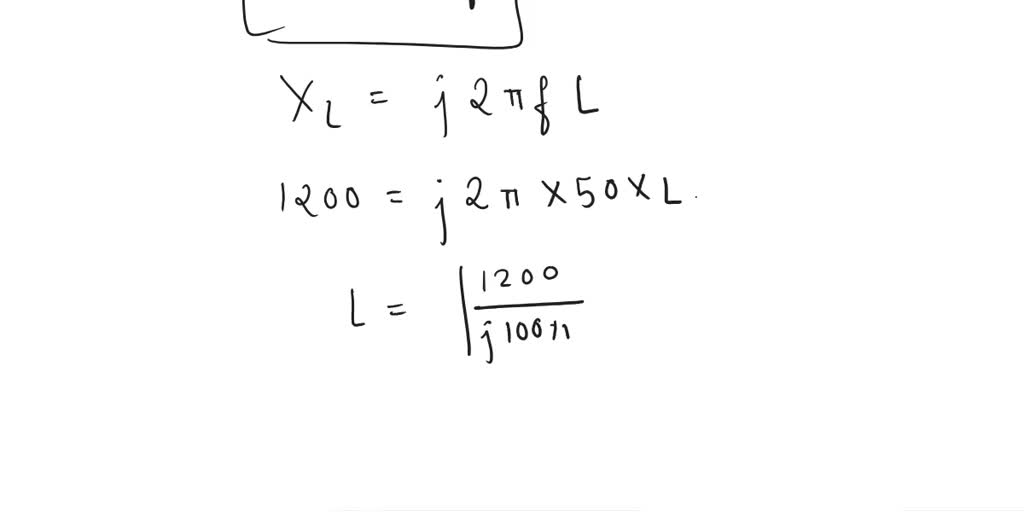 X_L = j 2 π f L
1200 = j 2 π × 50 × L.
L = | 1200 / j 100 π